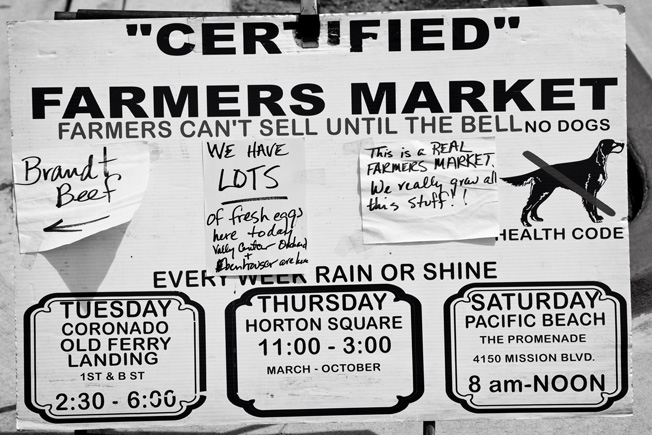 "CERTIFIED"
FARMERS MARKET
FARMERS CAN'T SELL UNTIL THE BELL
NO DOGS
HEALTH CODE
Brandt
Beef
WE HAVE
LOTS
of fresh eggs
here today
Valley Center Orchard
+
are here
This is a REAL
FARMERS MARKET.
We really grow all
this stuff!!
EVERY WEEK RAIN OR SHINE
TUESDAY
CORONADO
OLD FERRY
LANDING
1ST & B ST
2:30 - 6:00
THURSDAY
HORTON SQUARE
11:00 - 3:00
MARCH - OCTOBER
SATURDAY
PACIFIC BEACH
THE PROMENADE
4150 MISSION BLVD.
8 am-NOON